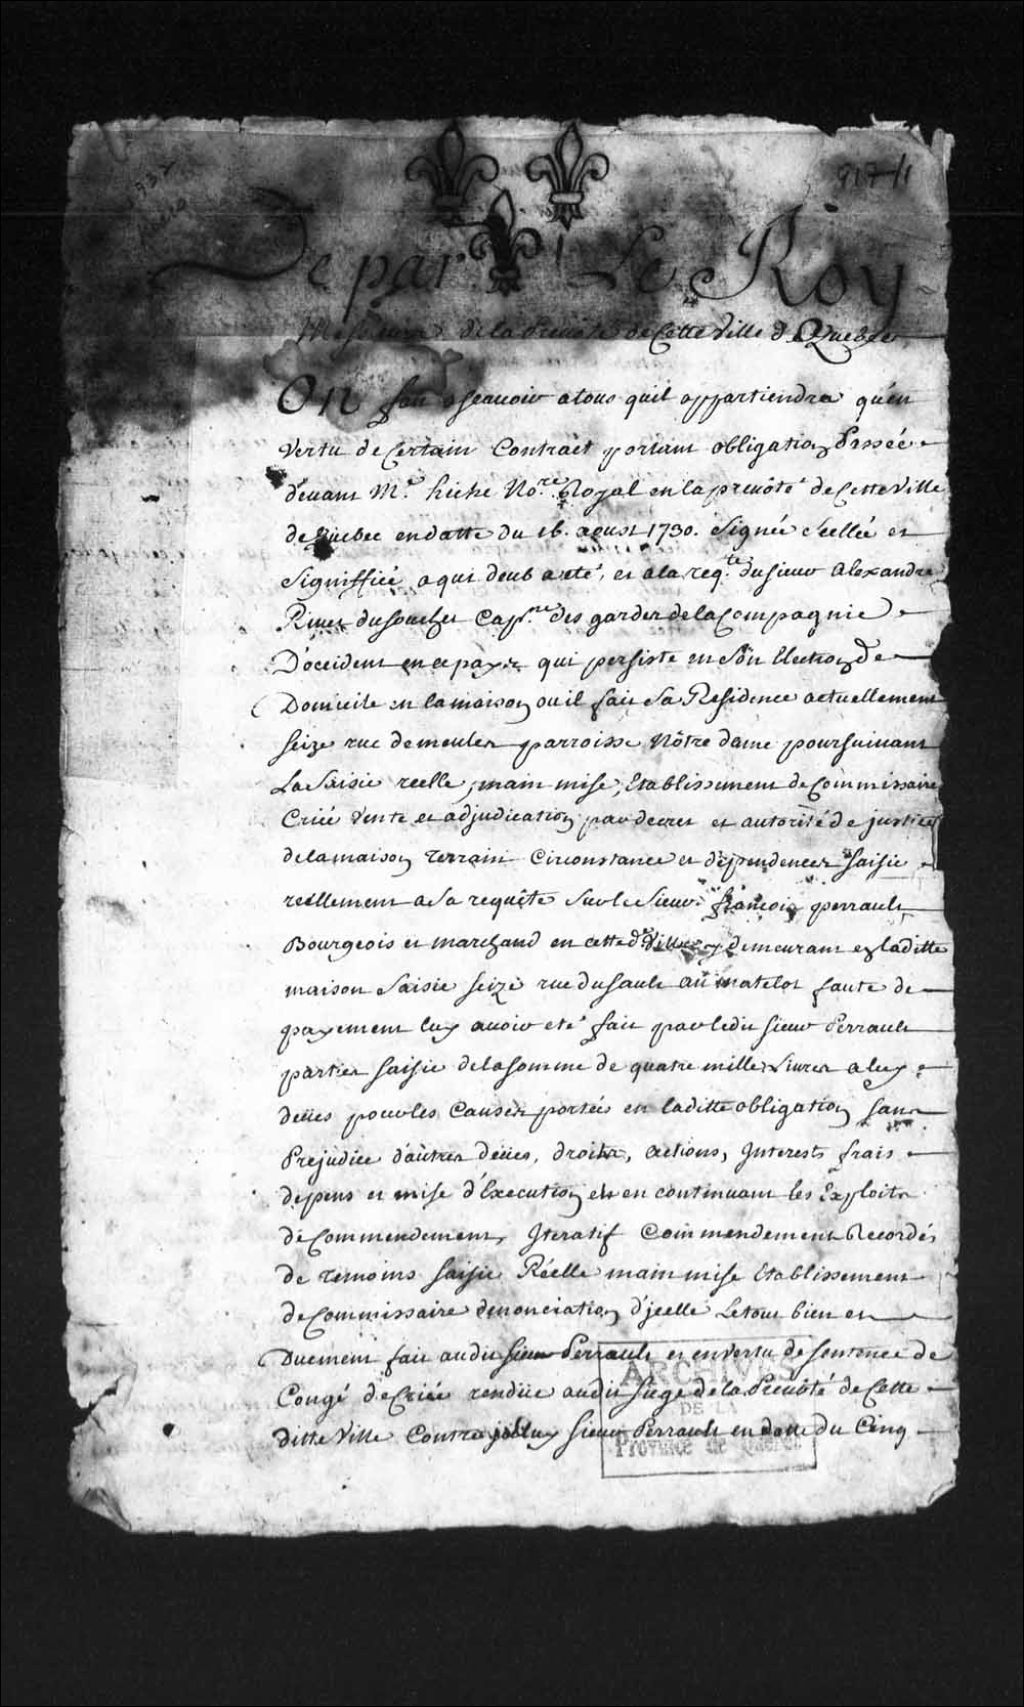 917/1
De par Le Roy
Messieurs de la Prevosté de Cette Ville de Quebec
ON fait ascauoir a tous quil appartiendra qu'en
Vertu de Certain Contract portant obligation Passée
deuant Me. hiche Nore. Royal en la preuôté de Cette Ville
de Quebec en datte du 16. aoust 1730. Signée Scellée et
Signiffiée a qui deub a eté, et a la reqte. du sieur alexandre
Riuet du souchet Capne. des gardes de la Compagnie
D'occident en ce pays qui persiste en Son Election de
Domicile en la maison ou il fait Sa Residence actuellement
seize rue de meules parroisse Nôtre dame poursuiuant
La Saisie reelle, main mise, Etablissement de Commissaire
Criée Vente et adjudication par decret et autorité de justice
de la maison terrain Circonstance et dépendences Saisie
reellement a Sa requête Sur le Sieur françois perrault
Bourgeois et marchand en cette de. Ville y demeurant en laditte
maison Saisie seize rue du Sault au matelot faute de
payement luy auoir eté fait par ledit Sieur Perrault
parties saisie de la somme de quatre mille Liures a luy
deües pour les Causes portées en laditte obligation sans
Prejudice d'autres deües, droits, actions, Interests frais
depens et mise d'Execution et en continuant les Exploits
de Commendement, Iteratif Commendement Recordés
de temoins Saisie Réelle main mise Etablissement
de Commissaire denonciation d'jcelle Le tout bien et
Duement fait audit Sieur Perrault et en vertu de sentence de
Congé de Criée rendüe audit Siege de la Preuôté de Cette
ditte Ville Contre jceluy Sieur Perrault en datte du Cinq
ARCHIVES
DE LA
Province de Québec